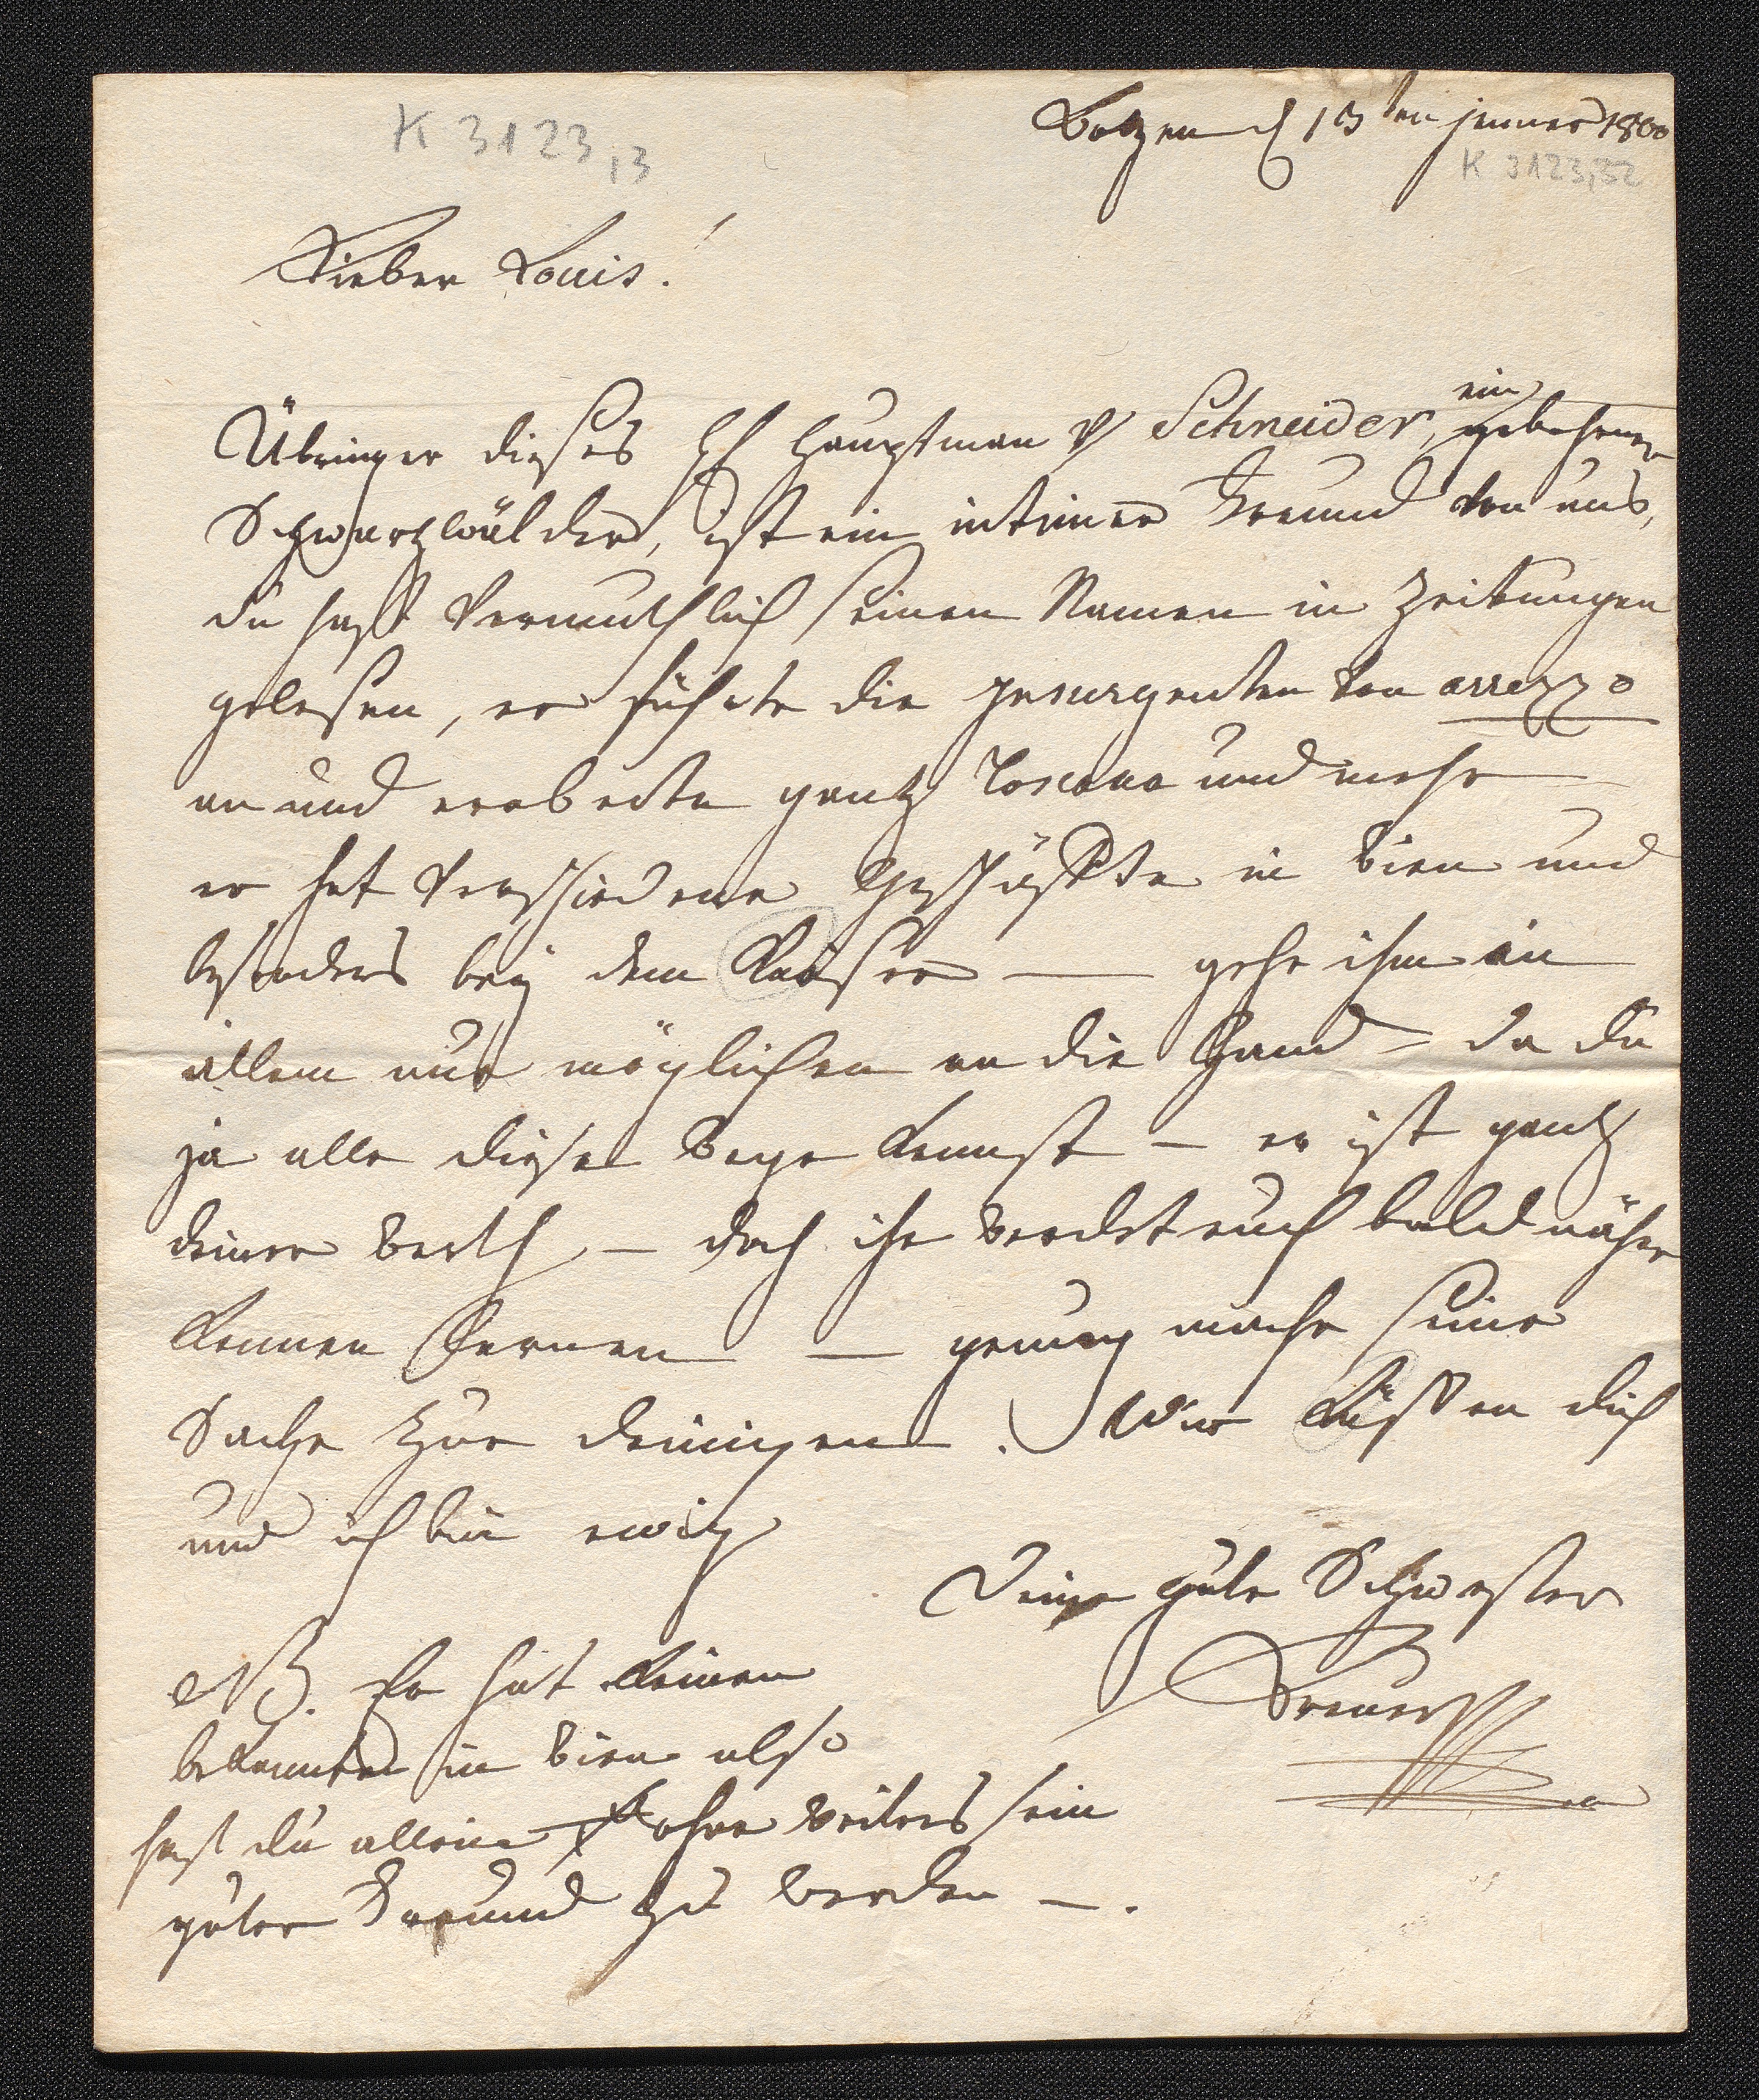 K 3123,3
Botzen d 13ten jenner 1800
K 3123,32
Lieber Louis!
Übringer dieses H Hauptman v Schneider, ein gebohrner
Schwartzwälder, ist ein intimer Freund von uns,
du hast vermuthlich seinen Namen in Zeitungen
gelesen, er führte die Jnsurgenten von arrezzo
an und eroberte gantz Toscana und mehr
er hat verschiedene Geschäffte in Wien und
besonders beÿ dem Kaiser — gehe ihm in
allem nur möglichen an die Hand – da du
ja alle diese Wege kennst – er ist gantz
deiner werth – doch ihr werdet euch bald näher
kennen lernen — genung mache seine
Sache zur deinigen. Wir küssen dich
und ich bin ewig
Deine gute Schwester
NB. Er hat keinen
bekannten in Wien also
hast du allein ohne weiters sein
guter Freund zu werden –.